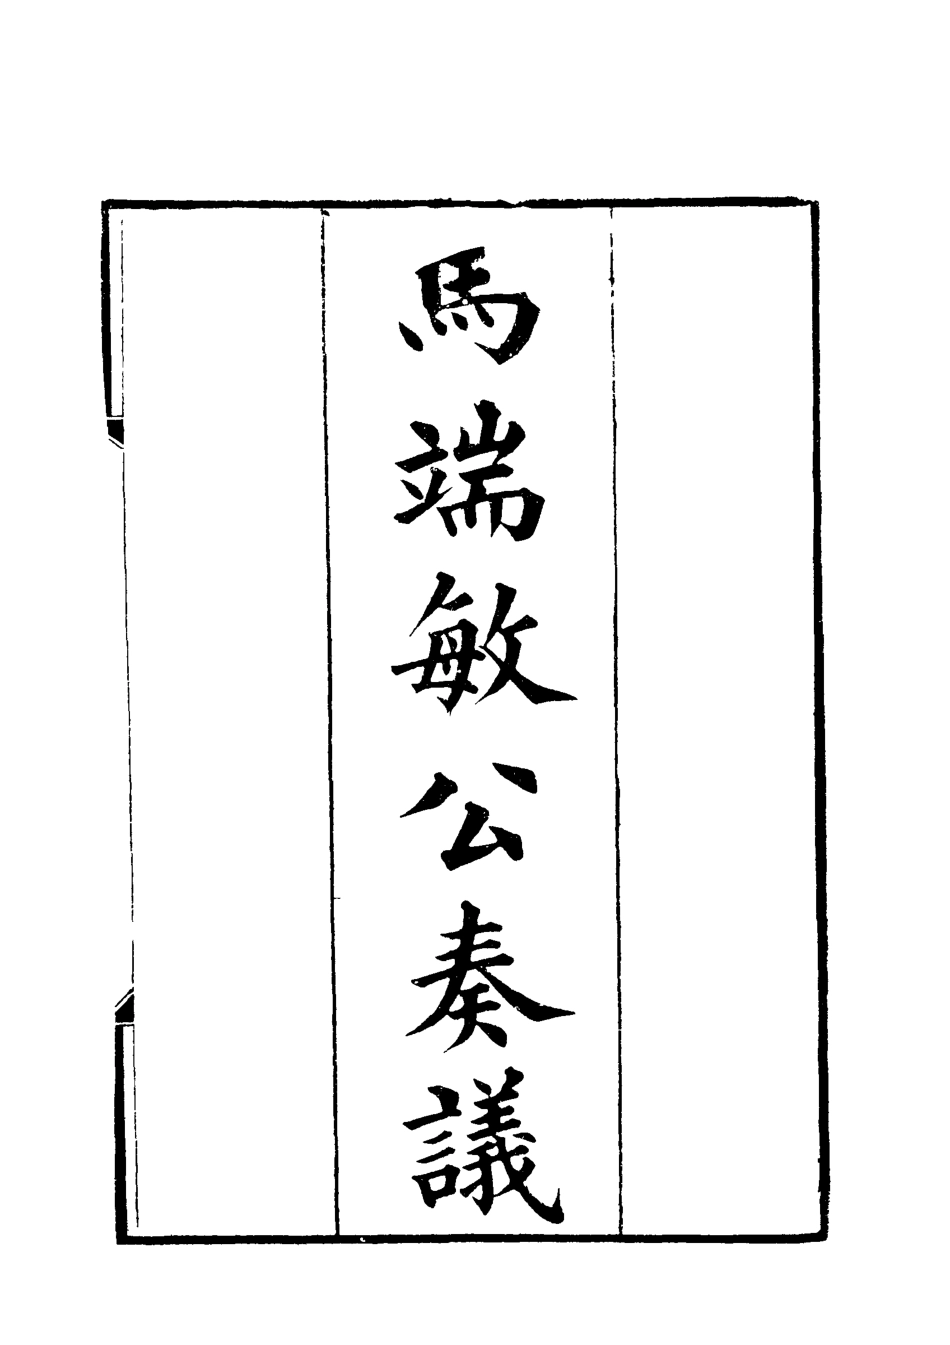 馬端敏公奏議